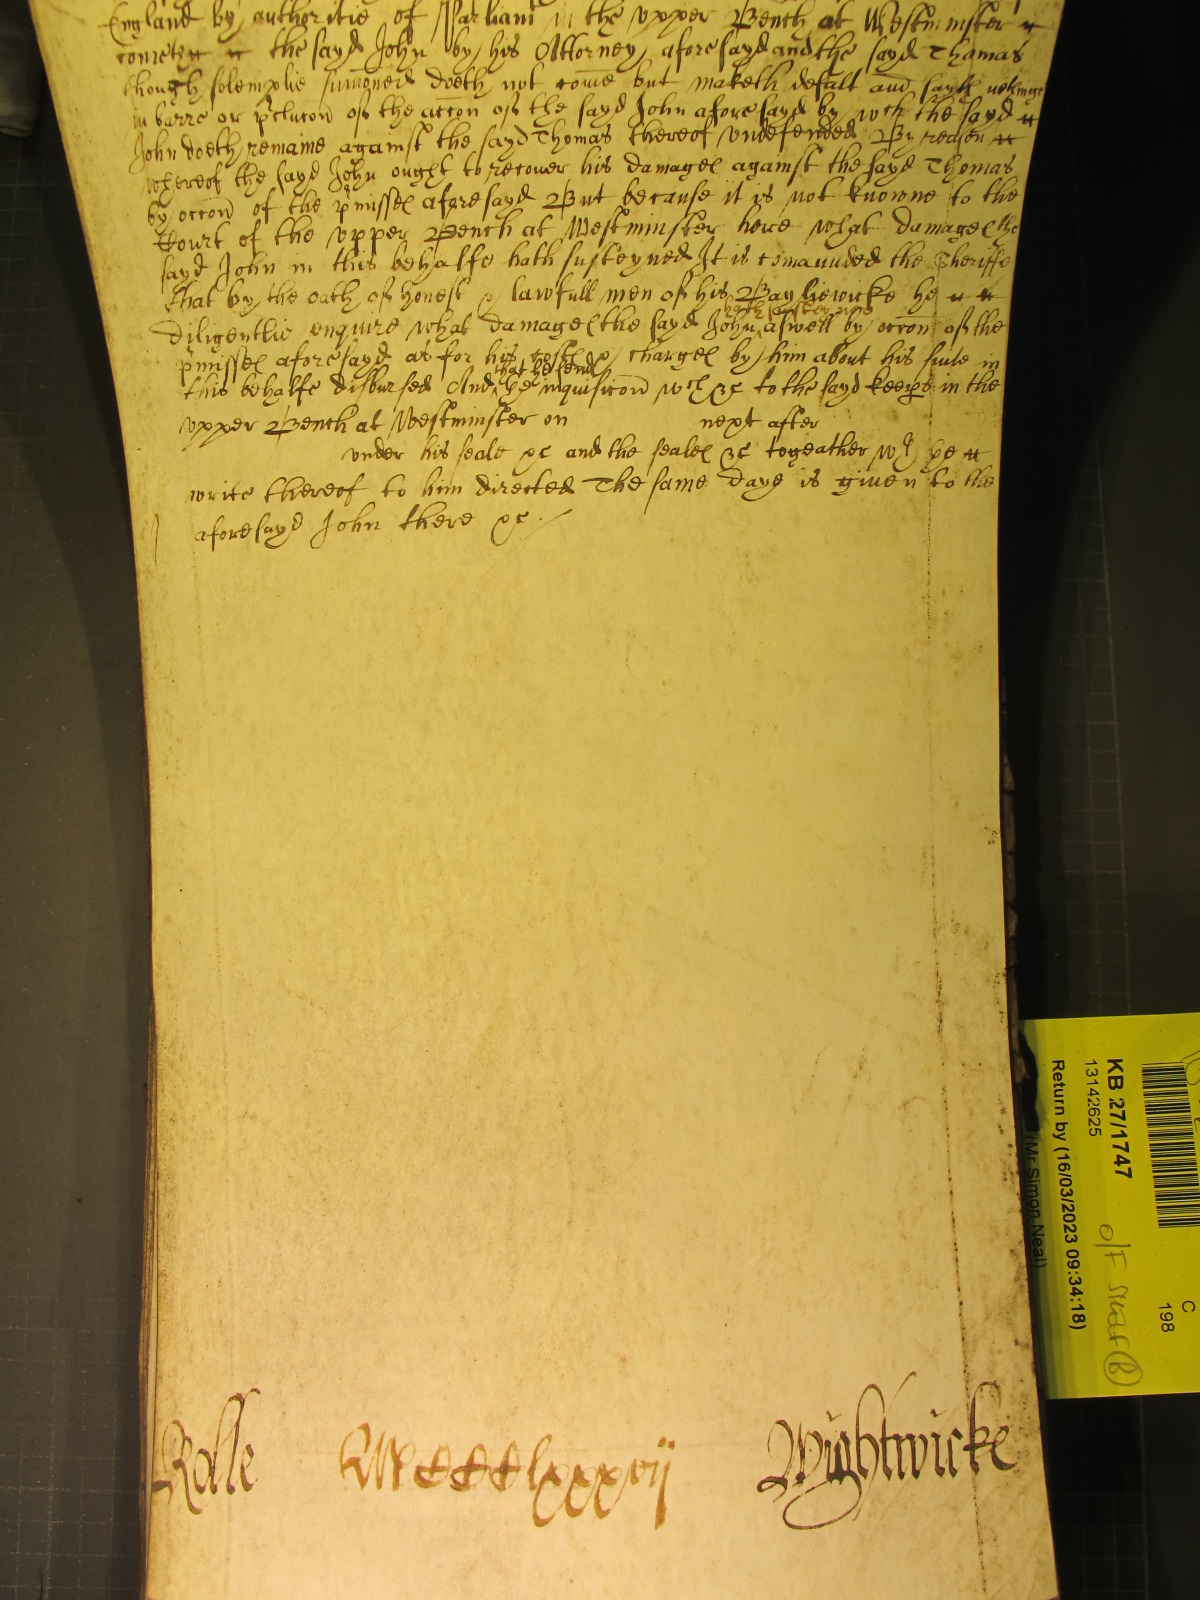 England by authoritie of Parliamt in the upper Bench at Westminster
cometh the sayd John by his Attorney aforesayd and the sayd Thomas
though solemplie sum̄oned doeth not come but maketh defalt and sayth nothinge
in barre or p̱clucon̄ of the accon̄ of the sayd John aforesayd by wch the sayd
John doeth remaine against the sayd Thomas thereof undefended By reason
whereof the sayd John ought to recover his damages against the sayd Thomas
by occon̄ of the p̱misses aforesayd But because it is not knowne to the
Court of the upper Bench at Westminster here what damages the
sayd John in this behalfe hath susteyned It is comaunded the Sheriffe
that by the oath of honest & lawfull men of his Bayliewicke he
hath susteyned
diligentlie enquire what damages the sayd John aswell by occon̄ of the
p̱misses aforesayd as for his costes & charges by him about his suite in
that he send
this behalfe disbursed And ye inquisicon̄ wch &c to the sayd keeps in the
upper Bench at Westminster on next after
under his seale &c and the seales &c togeather wth ye
write thereof to him directed The same daye is given to the
aforesayd John there &c
Rolle MCCCClxxxvij Wightwicke
KB 27/1747
13142625
Return by (16/03/2023 09:34:18)
(Mr Simon Neal)
C
198
o/F